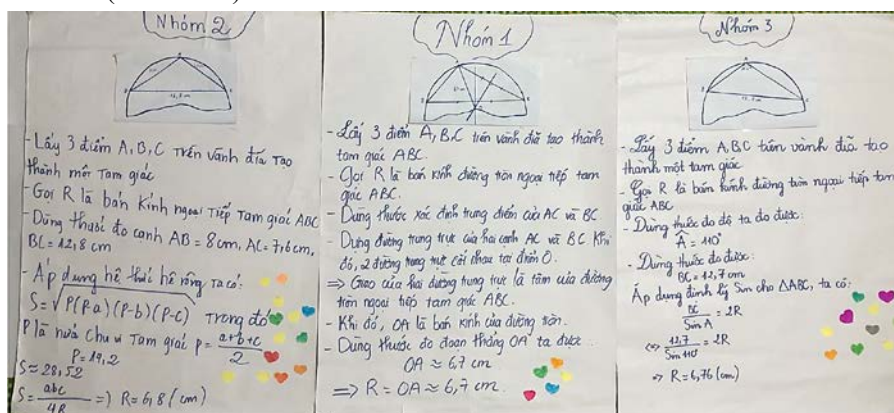 Nhóm 2
- Lấy 3 điểm A, B, C trên vành đĩa tạo
thành một tam giác
- Gọi R là bán kính ngoại tiếp tam giác ABC
- Dùng thước đo cạnh AB = 8cm, AC = 7,6cm,
BC = 12,8 cm
- Áp dụng hệ thức hê rông ta có:
S = √P(P-a)(P-b)(P-c) trong đó
P là nửa chu vi tam giác p = a+b+c/2
P = 14,2
S ≈ 28,52
S = abc/4R => R = 6,8 (cm)
Nhóm 1
- Lấy 3 điểm A, B, C trên vành đĩa tạo thành
tam giác ABC.
- Gọi R là bán kính đường tròn ngoại tiếp tam
giác ABC.
- Dùng thước xác định trung điểm của AC và BC
- Dựng đường trung trực của hai cạnh AC và BC. Khi
đó, 2 đường trung trực cắt nhau tại điểm O.
=> Giao của hai đường trung trực là tâm của đường
tròn ngoại tiếp tam giác ABC.
- Khi đó, OA là bán kính của đường tròn.
- Dùng thước đo đoạn thẳng OA ta được:
OA ≈ 6,7 cm
=> R = OA ≈ 6,7 cm.
Nhóm 3
- Lấy 3 điểm A, B, C trên vành đĩa tạo
thành một tam giác
- Gọi R là bán kính đường tròn ngoại tiếp tam
giác ABC
- Dùng thước đo độ ta đo được:
Â = 110°
- Dùng thước đo được:
BC = 12,7 cm
Áp dụng định lý Sin cho ΔABC, ta có:
BC/Sin A = 2R
<=> 12,7/Sin 110° = 2R
=> R = 6,76 (cm)